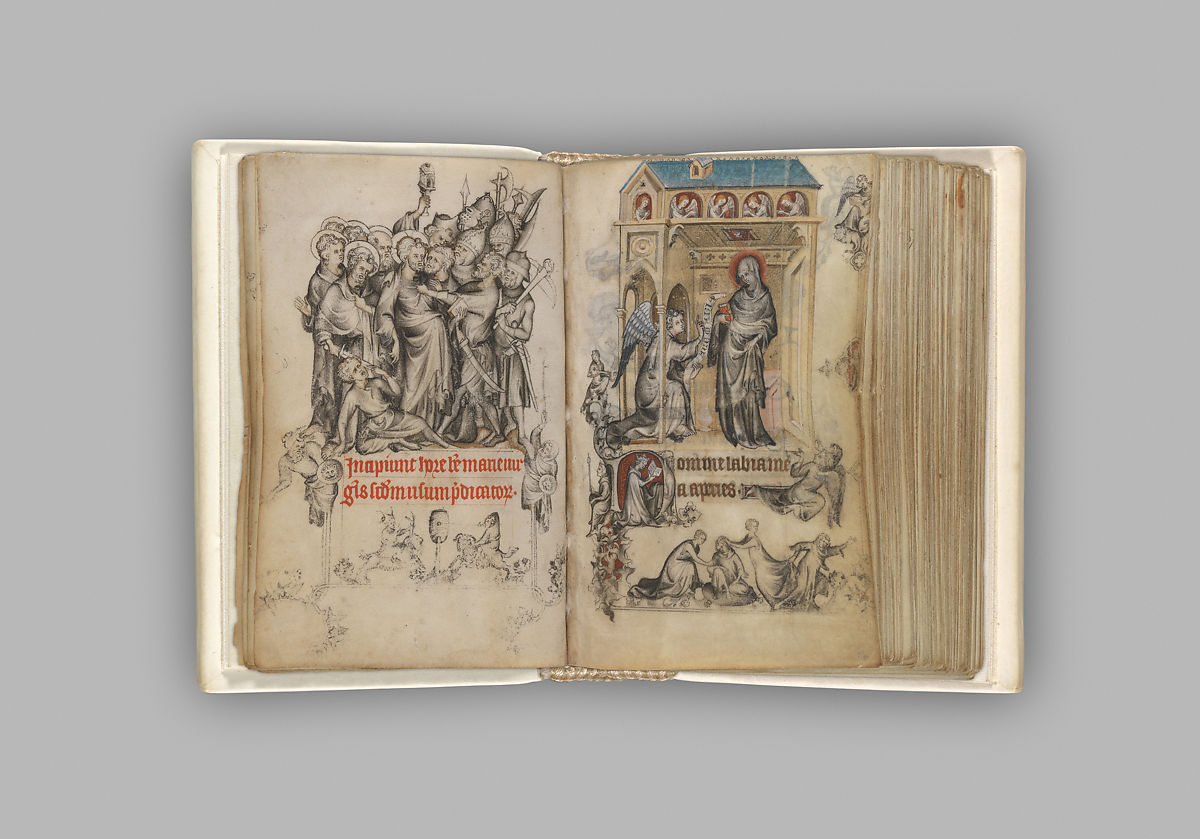 Incipiunt hore be marie uir
gīs scdm usum p̄dicator̄.
Domine labia me
a aperies.